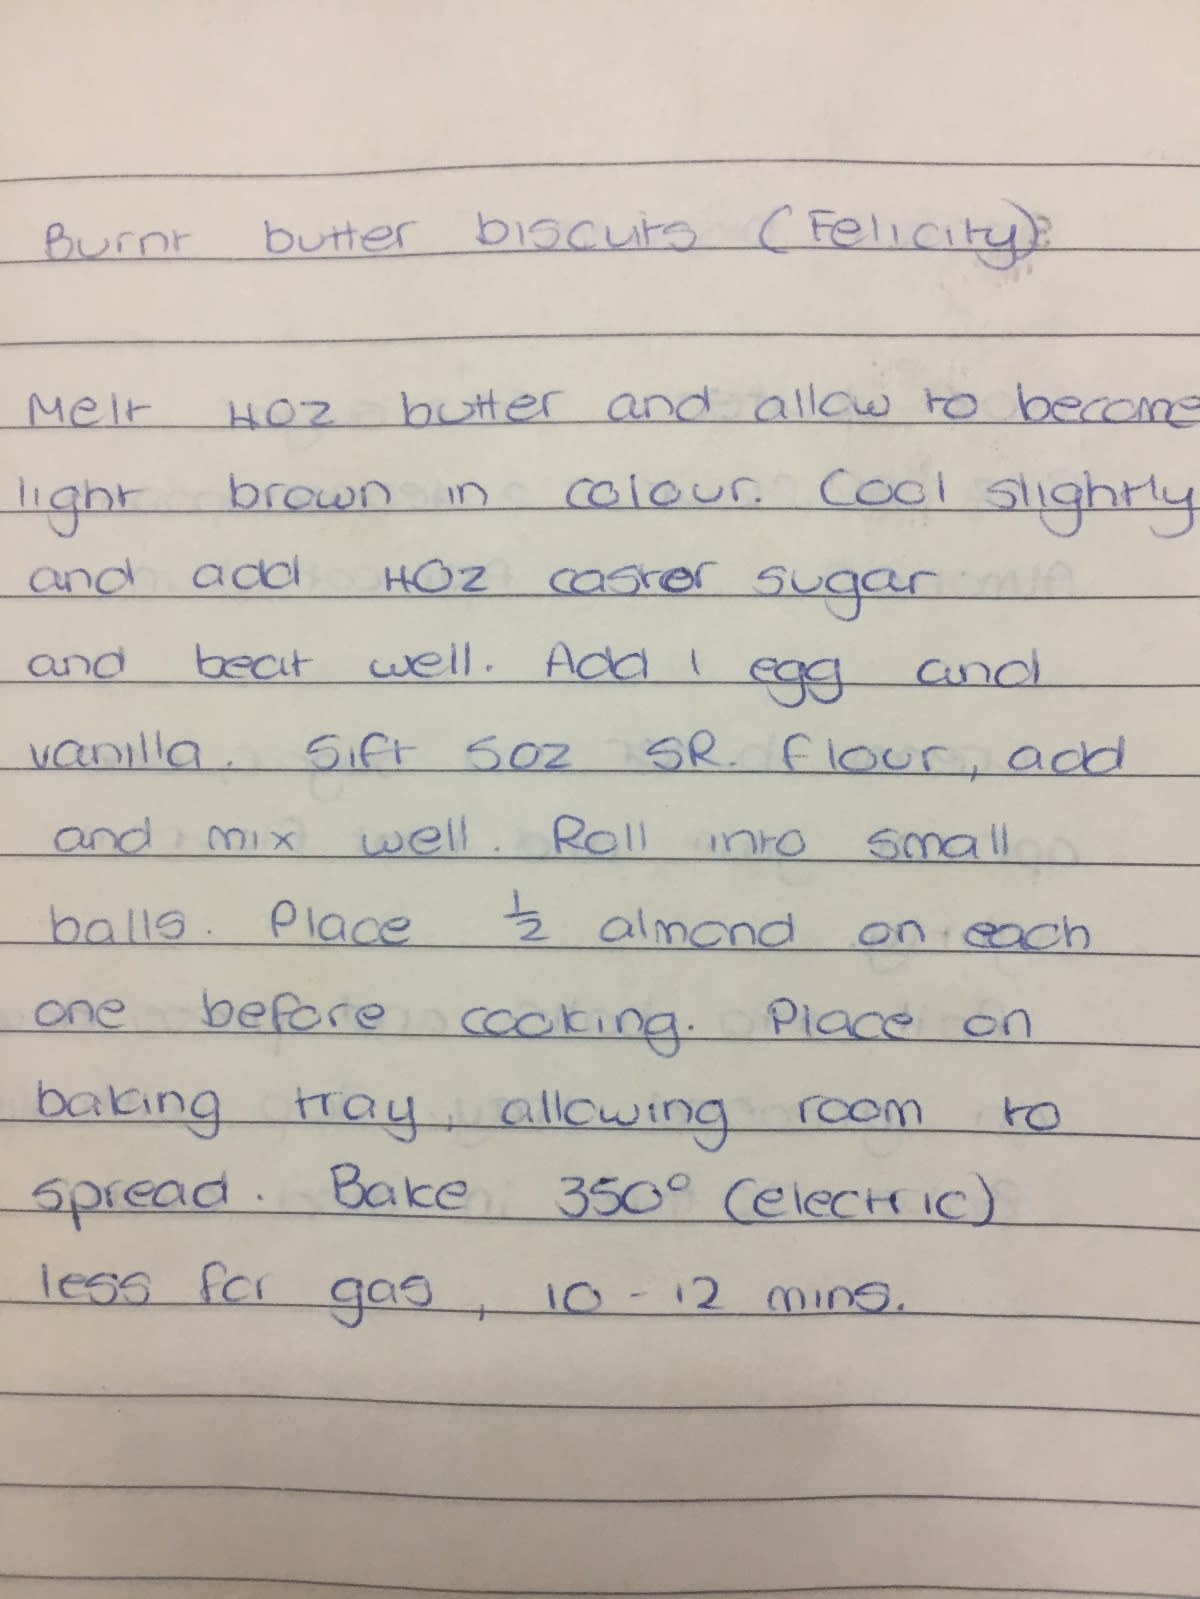 Burnt butter biscuits (Felicity)
Melt 4oz butter and allow to become
light brown in colour. Cool slightly
and add 4oz caster sugar
and beat well. Add 1 egg and
vanilla. Sift 5oz SR. flour, add
and mix well. Roll into small
balls. Place ½ almond on each
one before cooking. Place on
baking tray, allowing room to
spread. Bake 350° (electric)
less for gas, 10-12 mins.